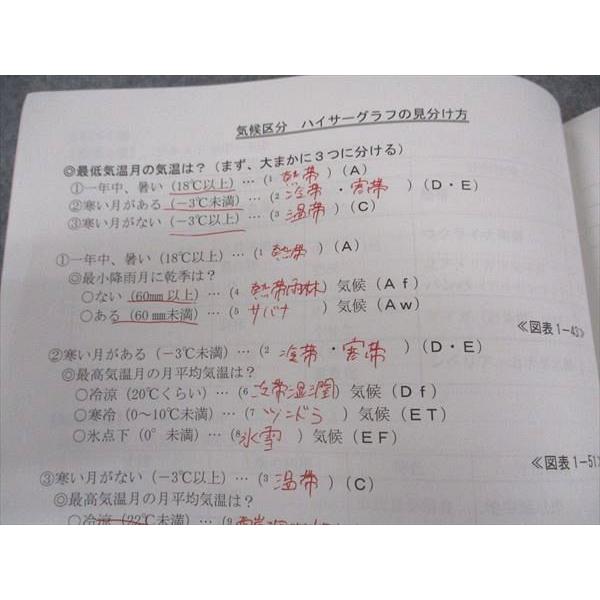 気候区分 ハイサーグラフの見分け方
◎最低気温月の気温は？（まず、大まかに３つに分ける）
①一年中、暑い（18℃以上）…（¹ 熱帯 ）（A）
②寒い月がある（−3℃未満）…（² 冷帯 ・ 寒帯 ）（D・E）
③寒い月がない（−3℃以上）…（³ 温帯 ）（C）
①一年中、暑い（18℃以上）…（¹ 熱帯 ）（A）
◎最小降雨月に乾季は？
○ない（60mm以上）…（⁴ 熱帯雨林）気候（Ａｆ）
○ある（60mm未満）…（⁵ サバナ ）気候（Ａｗ）
≪図表1−43≫
②寒い月がある（−3℃未満）…（² 冷帯 ・ 寒帯 ）（D・E）
◎最高気温月の月平均気温は？
○冷涼（20℃くらい）…（⁶ 冷帯湿潤）気候（Ｄｆ）
○寒冷（0〜10℃未満）…（⁷ ツンドラ ）気候（ＥＴ）
○氷点下（0°未満）…（⁸ 氷雪 ）気候（ＥＦ）
≪図表1−51≫
③寒い月がない（−3℃以上）…（³ 温帯 ）（C）
◎最高気温月の月平均気温は？
○冷涼（22℃未満）…（⁹